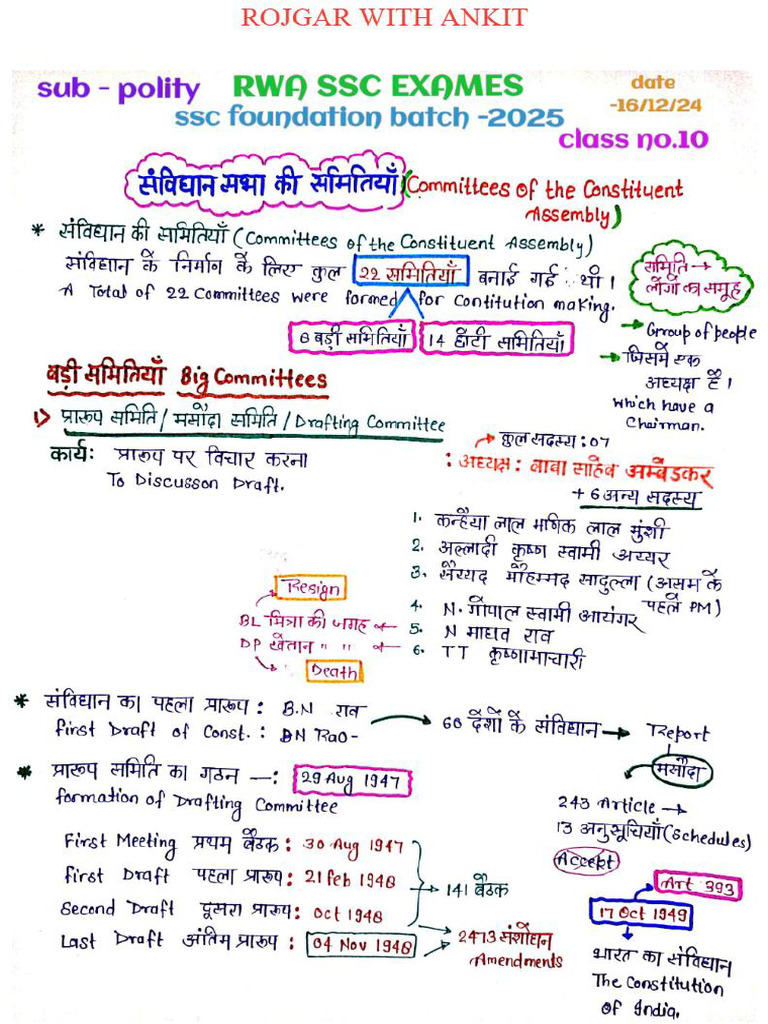 ROJGAR WITH ANKIT
sub - polity
RWA SSC EXAMES
date
-16/12/24
ssc foundation batch -2025
class no.10
संविधान सभा की समितियाँ (Committees of the Constituent Assembly)
* संविधान की समितियाँ (Committees of the Constituent Assembly)
संविधान के निर्माण के लिए कुल 22 समितियाँ बनाई गई थी।
A Total of 22 Committees were formed for Contitution making.
8 बड़ी समितियाँ
14 छोटी समितियाँ
समिति →
लोगों का समूह
→ Group of people
→ जिसमें एक
अध्यक्ष है।
which have a
Chairman.
बड़ी समितियाँ Big Committees
1) प्रारूप समिति / मसौदा समिति / Drafting Committee
कार्य: प्रारूप पर विचार करना
To Discusson Draft.
→ कुल सदस्य : 07
: अध्यक्ष : बाबा साहेब अम्बेडकर
+ 6 अन्य सदस्य
1. कन्हैया लाल मणिक लाल मुंशी
2. अल्लादी कृष्ण स्वामी अय्यर
3. सैय्यद मौहम्मद सादुल्ला (असम के
पहले PM)
4. N. गोपाल स्वामी आयंगर
5. N माधव राव
6. TT कृष्णामाचारी
Resign
BL मित्रा की जगह ←
DP खेतान " " ←
Death
* संविधान का पहला प्रारूप : B.N राव
first Draft of Const. : BN Rao-
60 देशों के संविधान → Report
मसौदा
* प्रारूप समिति का गठन —: 29 Aug 1947
formation of Drafting Committee
243 Article →
13 अनुसूचियाँ (Schedules)
Accept
First Meeting प्रथम बैठक : 30 Aug 1947
first Draft पहला प्रारूप : 21 feb 1948
Second Draft दूसरा प्रारूप : Oct 1948
Last Draft अंतिम प्रारूप : 04 Nov 1948
→ 141 बैठक
→ 2473 संशोधन
Amendments
Art 393
17 Oct 1949
भारत का संविधान
The Constitution
of India.